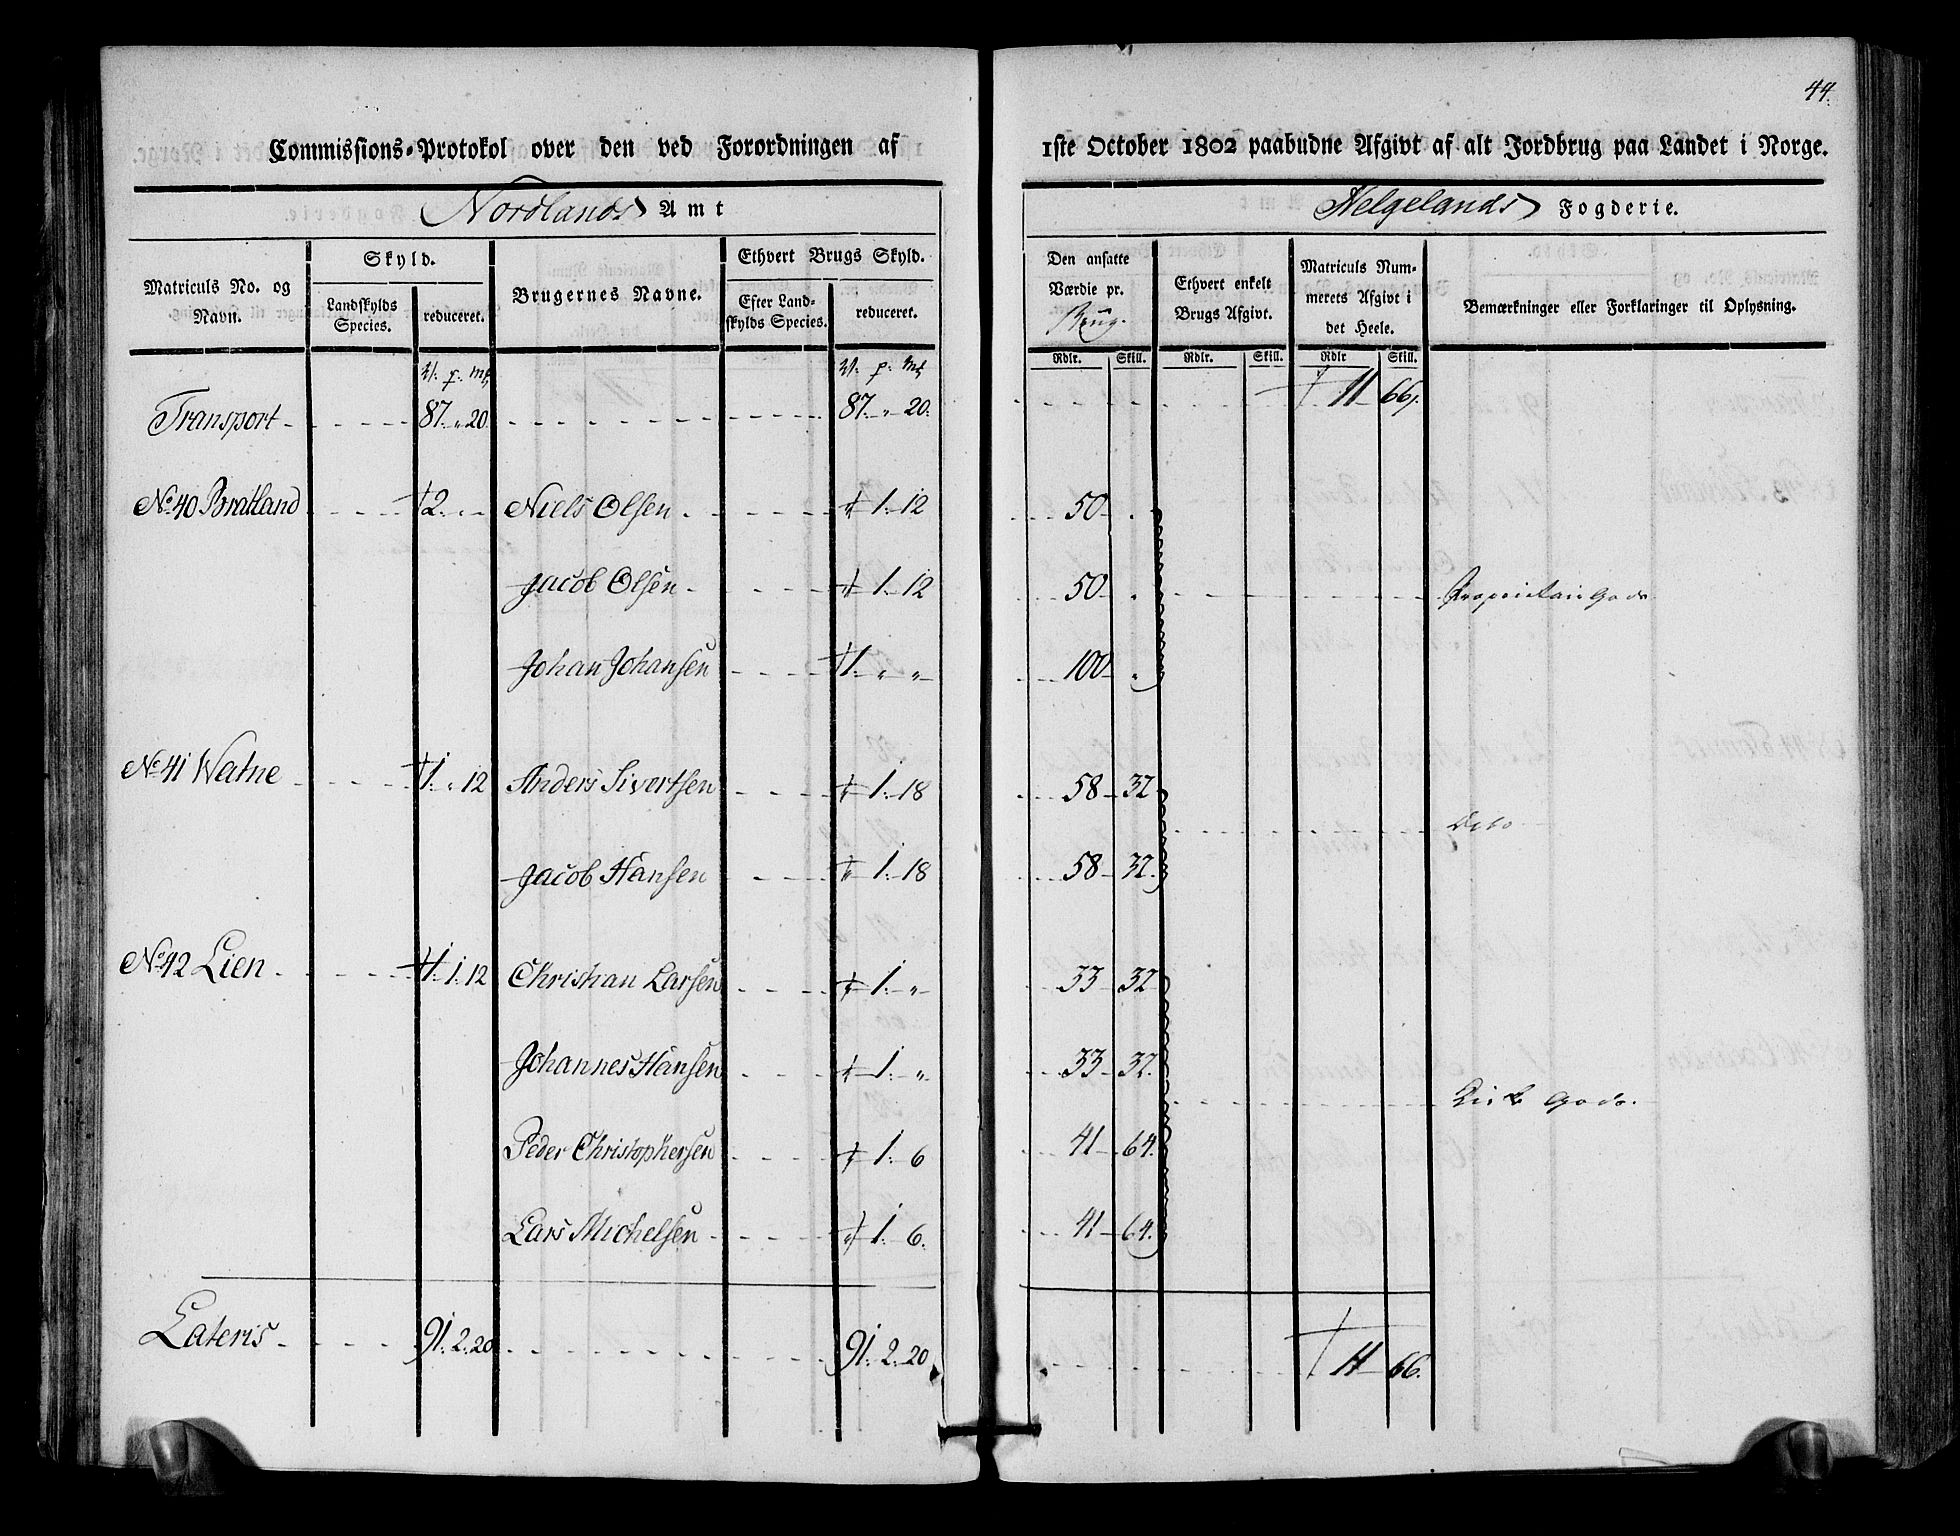 44.
Commissions-Protokol over den ved Forordningen af 1ste October 1802 paabudne Afgivt af alt Jordbrug paa Landet i Norge.
Nordlands Amt
Helgelands Fogderie.
Matriculs No. og Navn.
Skyld.
Landskylds Species.
reduceret.
Brugernes Navne.
Ethvert Brugs Skyld.
Efter Landskylds Species.
reduceret.
Den ansatte Værdie pr. Brug.
Ethvert enkelt Brugs Afgivt.
Matriculs Nummerets Afgivt i det Heele.
Bemærkninger eller Forklaringer til Oplysning.
Rdlr. Skill. Rdlr. Skill. Rdlr Skill.
V: p: mk V: p: mk
Transport 87. " 20. 87. " 20. 11 66.
No. 40 Bratland 2. " " Niels Olsen " 1. 12 50 "
Jacob Olsen " 1. 12 50 " Proprietair Gods
Johan Johansen 1. " " 100 "
No. 41 Watne 1. " 12 Anders Sivertsen " 1. 18 58 32
Dito
Jacob Hansen " 1. 18 58 32.
No. 42 Lien 1. 1. 12 Christian Larsen " 1. " 33 32
Johannes Hansen " 1. " 33 32.
Kirke Gods.
Peder Christophersen " 1. 6 41 64.
Lars Michelsen " 1. 6. 41 64.
Lateris 91. 2. 20 91. 2. 20 11 66.